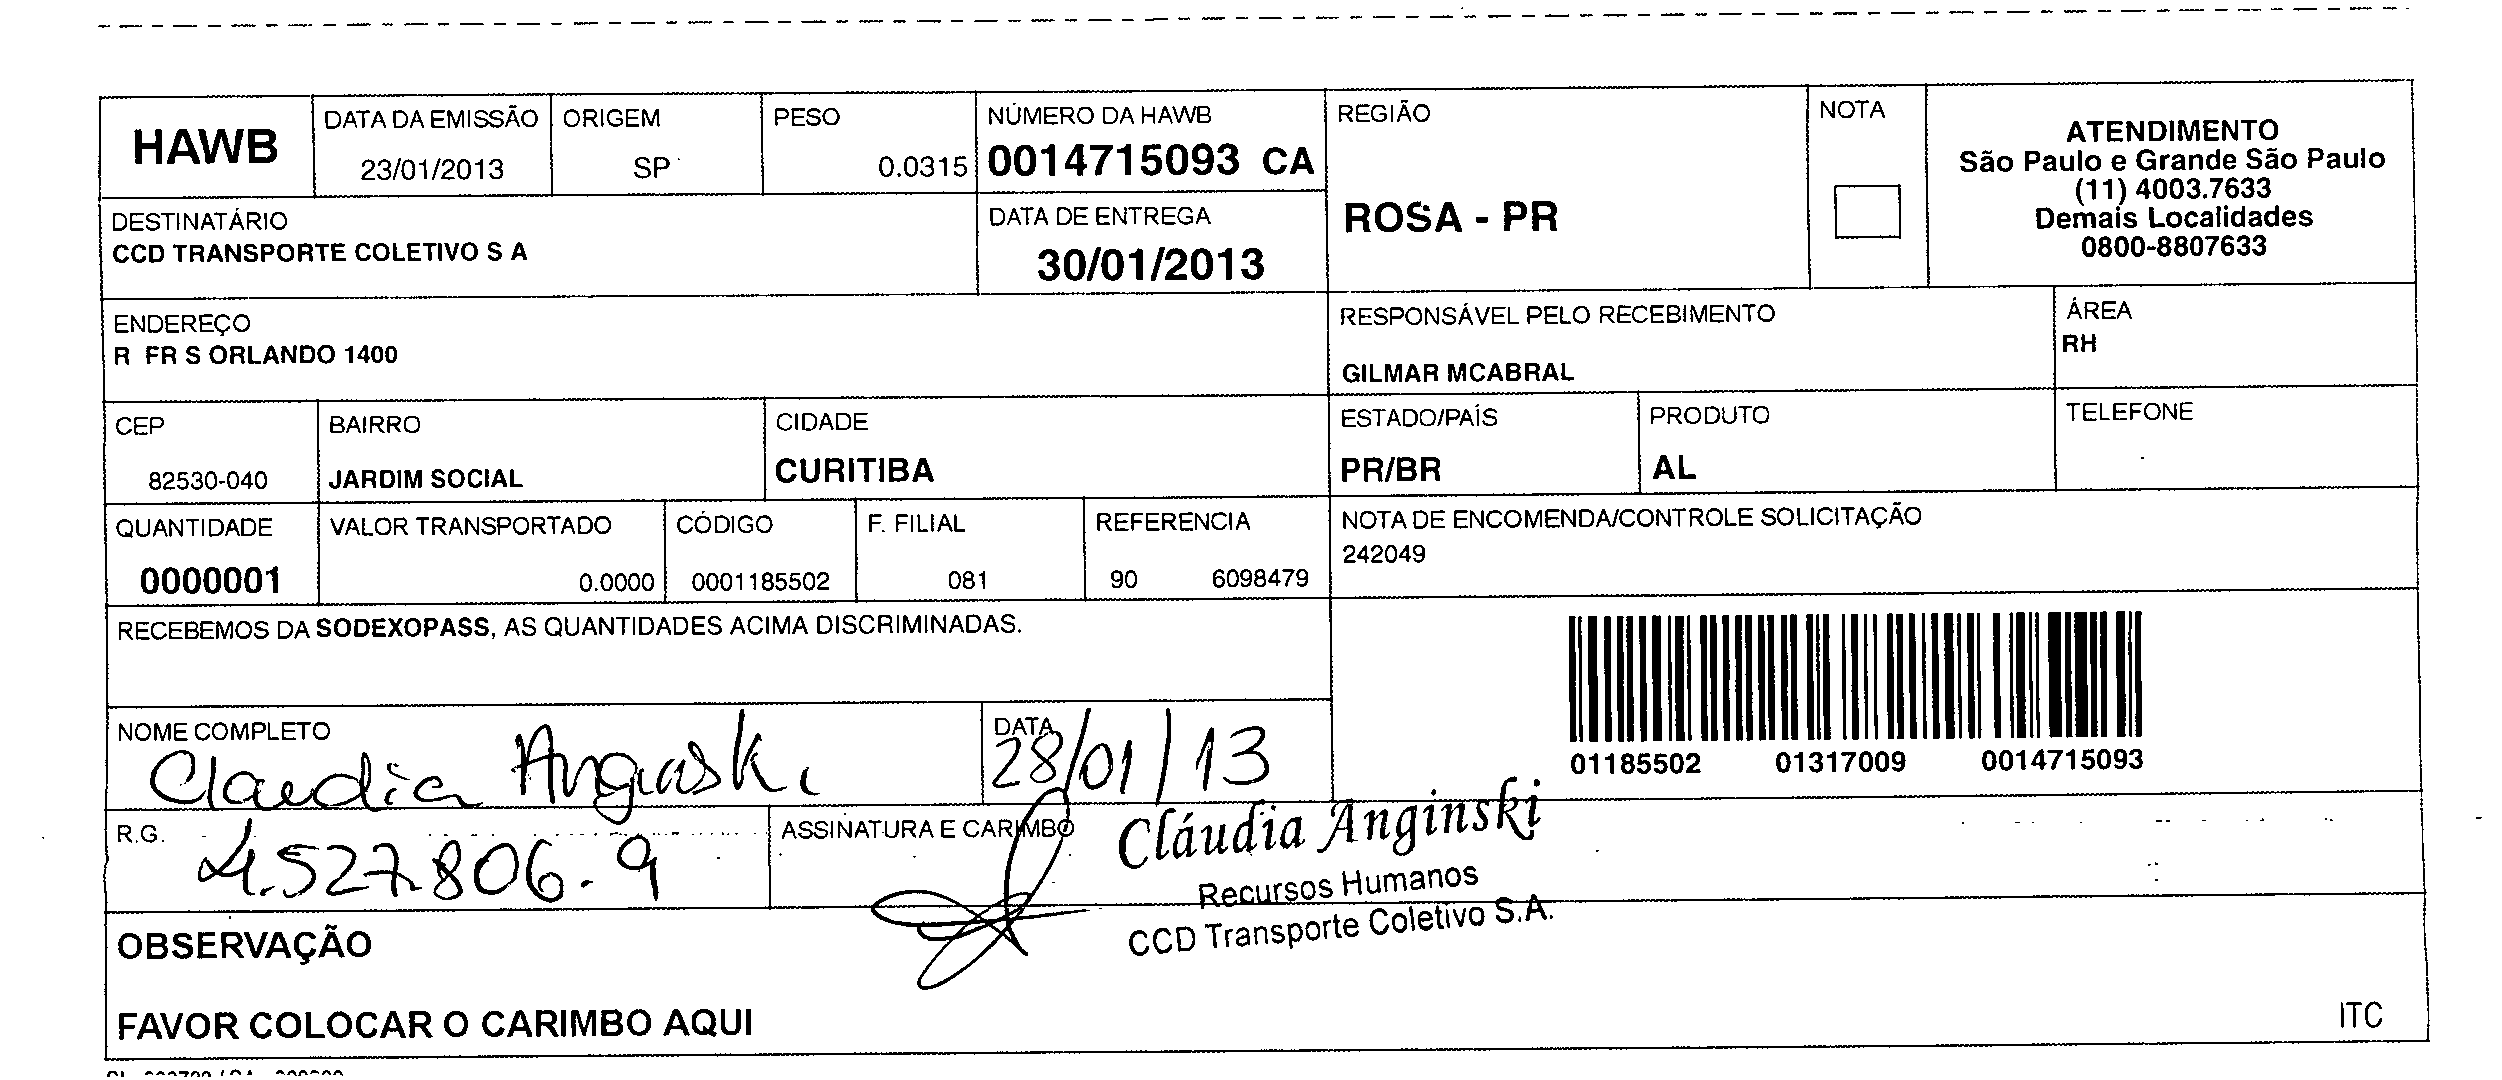 HAWB
DATA DA EMISSÃO
23/01/2013
ORIGEM
SP
PESO
0.0315
NÚMERO DA HAWB
0014715093 CA
REGIÃO
ROSA - PR
NOTA
ATENDIMENTO
São Paulo e Grande São Paulo
(11) 4003.7633
Demais Localidades
0800-8807633
DESTINATÁRIO
CCD TRANSPORTE COLETIVO S A
DATA DE ENTREGA
30/01/2013
ENDEREÇO
R FR S ORLANDO 1400
RESPONSÁVEL PELO RECEBIMENTO
GILMAR MCABRAL
ÁREA
RH
CEP
82530-040
BAIRRO
JARDIM SOCIAL
CIDADE
CURITIBA
ESTADO/PAÍS
PR/BR
PRODUTO
AL
TELEFONE
QUANTIDADE
0000001
VALOR TRANSPORTADO
0.0000
CÓDIGO
0001185502
F. FILIAL
081
REFERENCIA
90 6098479
NOTA DE ENCOMENDA/CONTROLE SOLICITAÇÃO
242049
RECEBEMOS DA SODEXOPASS, AS QUANTIDADES ACIMA DISCRIMINADAS.
01185502 01317009 0014715093
NOME COMPLETO
Claudia Anginski
DATA
28/01/13
R.G.
4.527.806-9
ASSINATURA E CARIMBO
Cláudia Anginski
Recursos Humanos
CCD Transporte Coletivo S.A.
OBSERVAÇÃO
FAVOR COLOCAR O CARIMBO AQUI
ITC